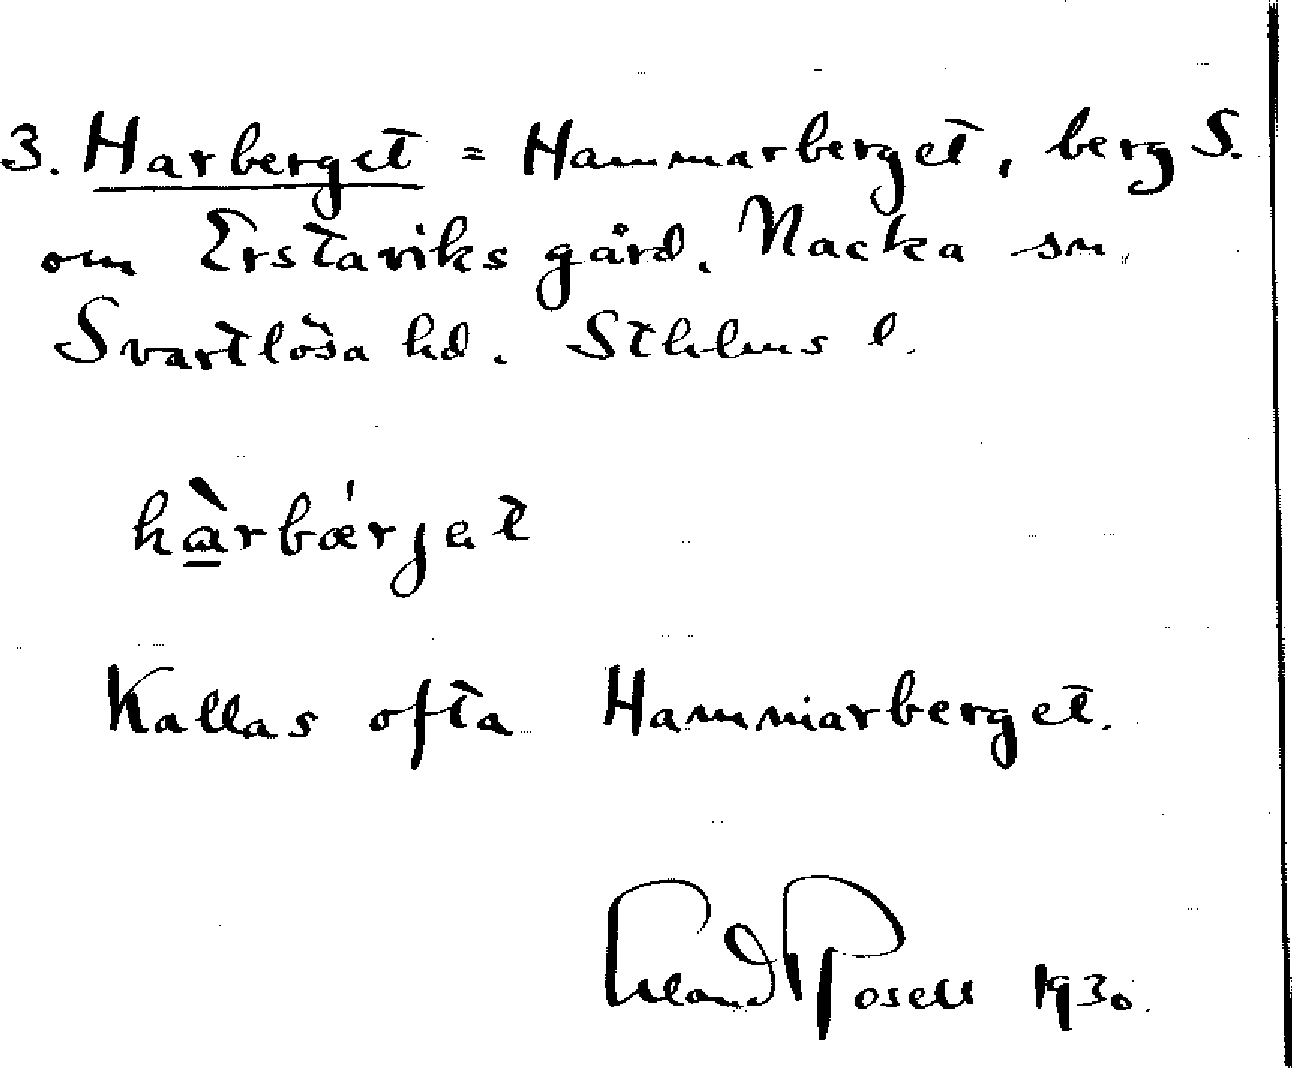 3. Harberget = Hammarberget, berg S.
om Erstaviks gård. Nacka sn
Svartlösa hd. Sthlms l.
hàrbǽrjet
Kallas ofta Hammarberget.
Erland Rosell 1930.